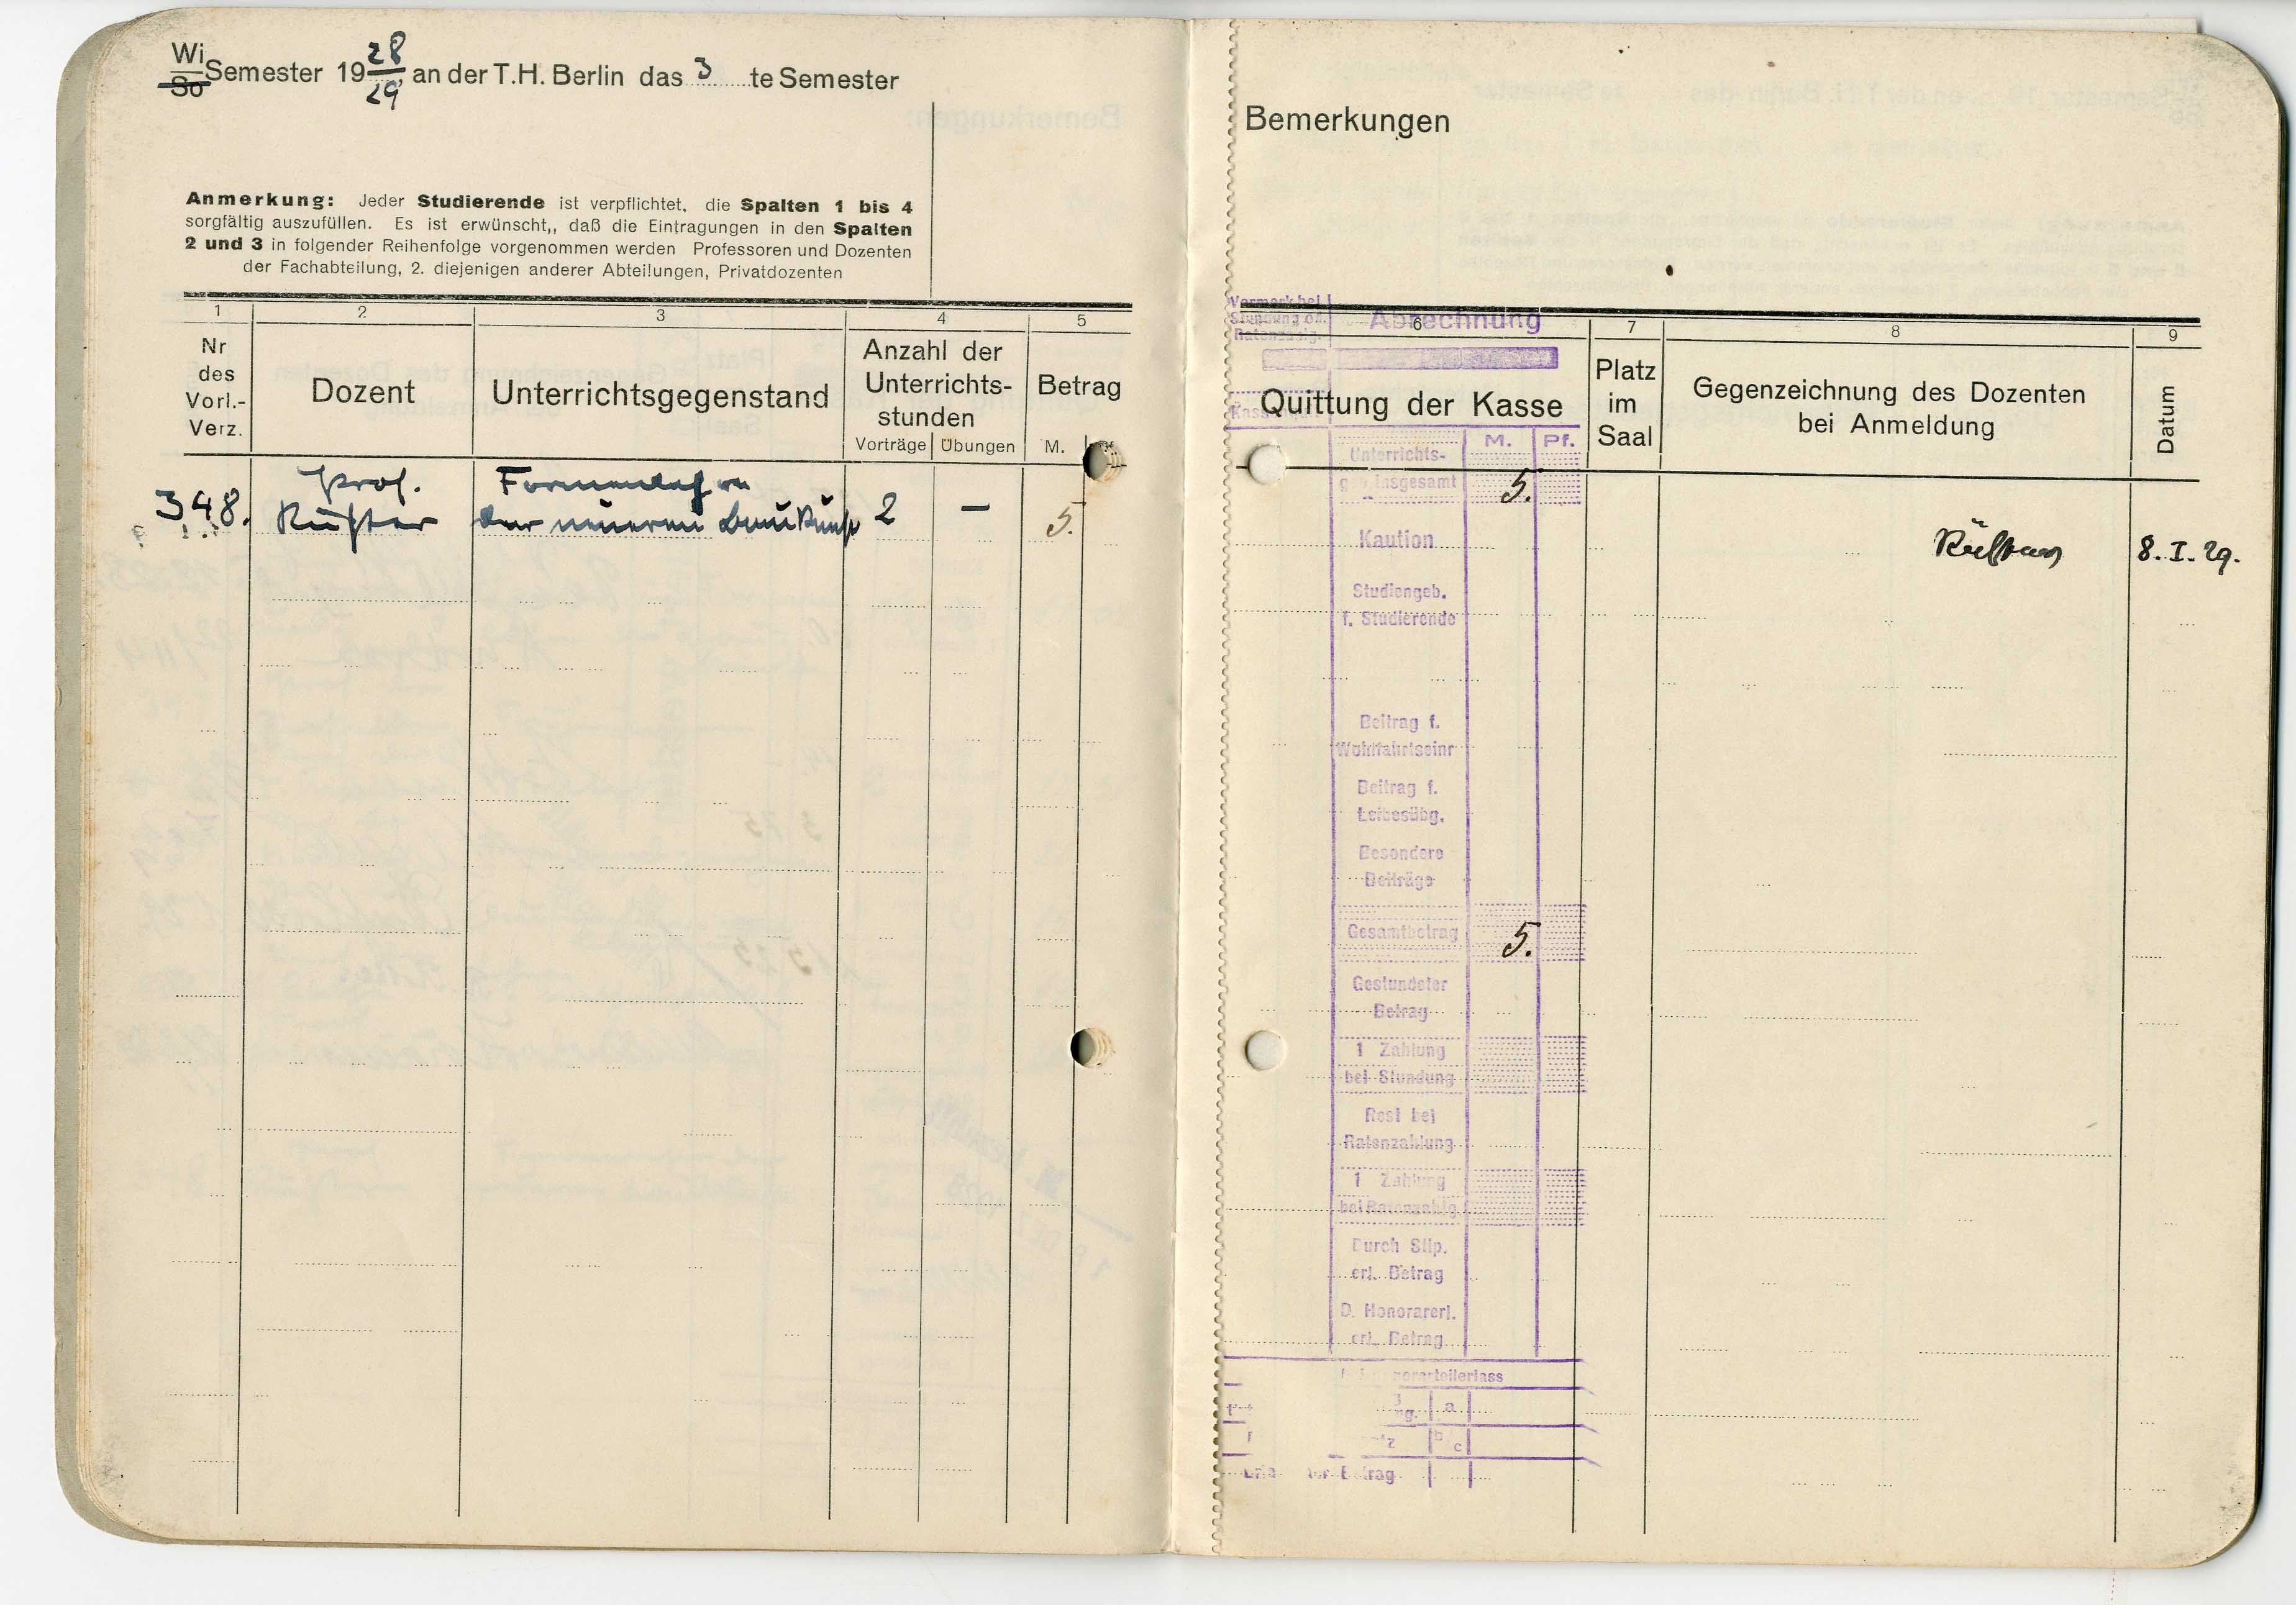 Wi
So
Semester 19 28/29 an der T.H. Berlin das 3 te Semester
Anmerkung: Jeder Studierende ist verpflichtet, die Spalten 1 bis 4
sorgfältig auszufüllen. Es ist erwünscht,, daß die Eintragungen in den Spalten
2 und 3 in folgender Reihenfolge vorgenommen werden Professoren und Dozenten
der Fachabteilung, 2. diejenigen anderer Abteilungen, Privatdozenten
1 2 3 4 5
Nr
des
Vorl.-
Verz.
Dozent
Unterrichtsgegenstand
Anzahl der
Unterrichts-
stunden
Vorträge Übungen
Betrag
M.
348.
Prof.
Rüster
Formenlehre
der neueren Baukunst
2 – 5.
Bemerkungen
Vermerk bei
Stundung od.
Ratenzahlg.
Abrechnung
6 7 8 9
Quittung der Kasse
Platz
im
Saal
Gegenzeichnung des Dozenten
bei Anmeldung
Datum
M. Pf.
Unterrichts-
insgesamt 5.
Kaution
Rüster 8. I. 29.
Studiengeb.
f. Studierende
Beitrag f.
Wohlfahrtseinr
Beitrag f.
Leibesübg.
Besondere
Beiträge
Gesamtbetrag 5.
Gestundeter
Betrag
1 Zahlung
bei Stundung
Rest bei
Ratenzahlung
1 Zahlung
bei Ratenzahlg
Durch Stip.
erl. Betrag
D. Honorarerl.
erl. Betrag
a
b c